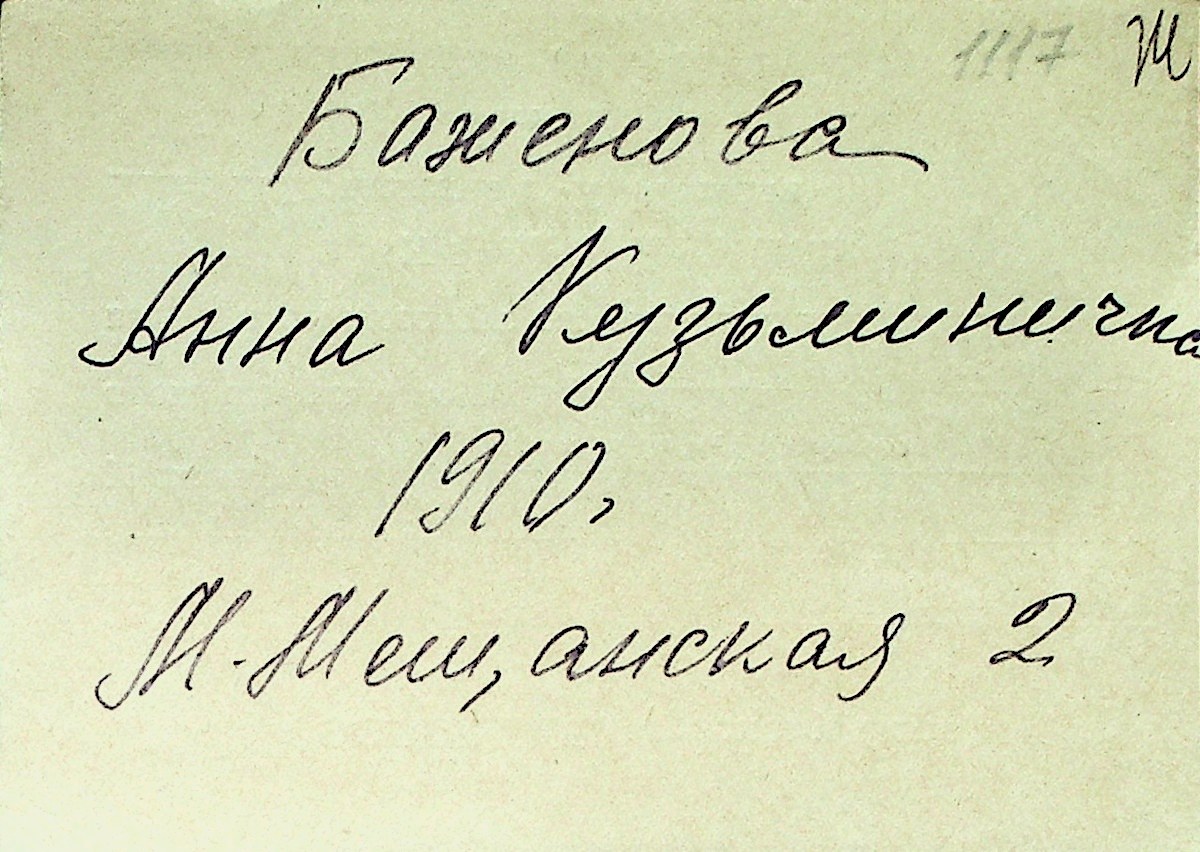 1117 Ж
Баженова
Анна Кузьминична
1910г
М. Мещанская 2